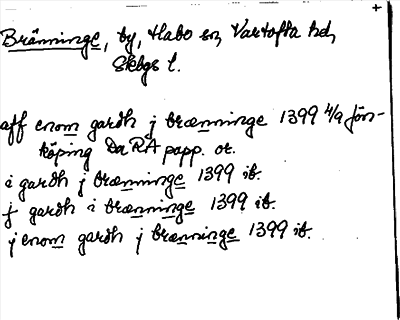 +
Bränninge, by, Habo sn, Vartofta hd,
Skbgs l.
aff enom gardh j brænninge 1399 4/9 Jön-
köping DaRA papp. or.
i gardh j brænninge 1399 ib.
j gardh i brænninge 1399 ib.
j enom gardh j brænninge 1399 ib.